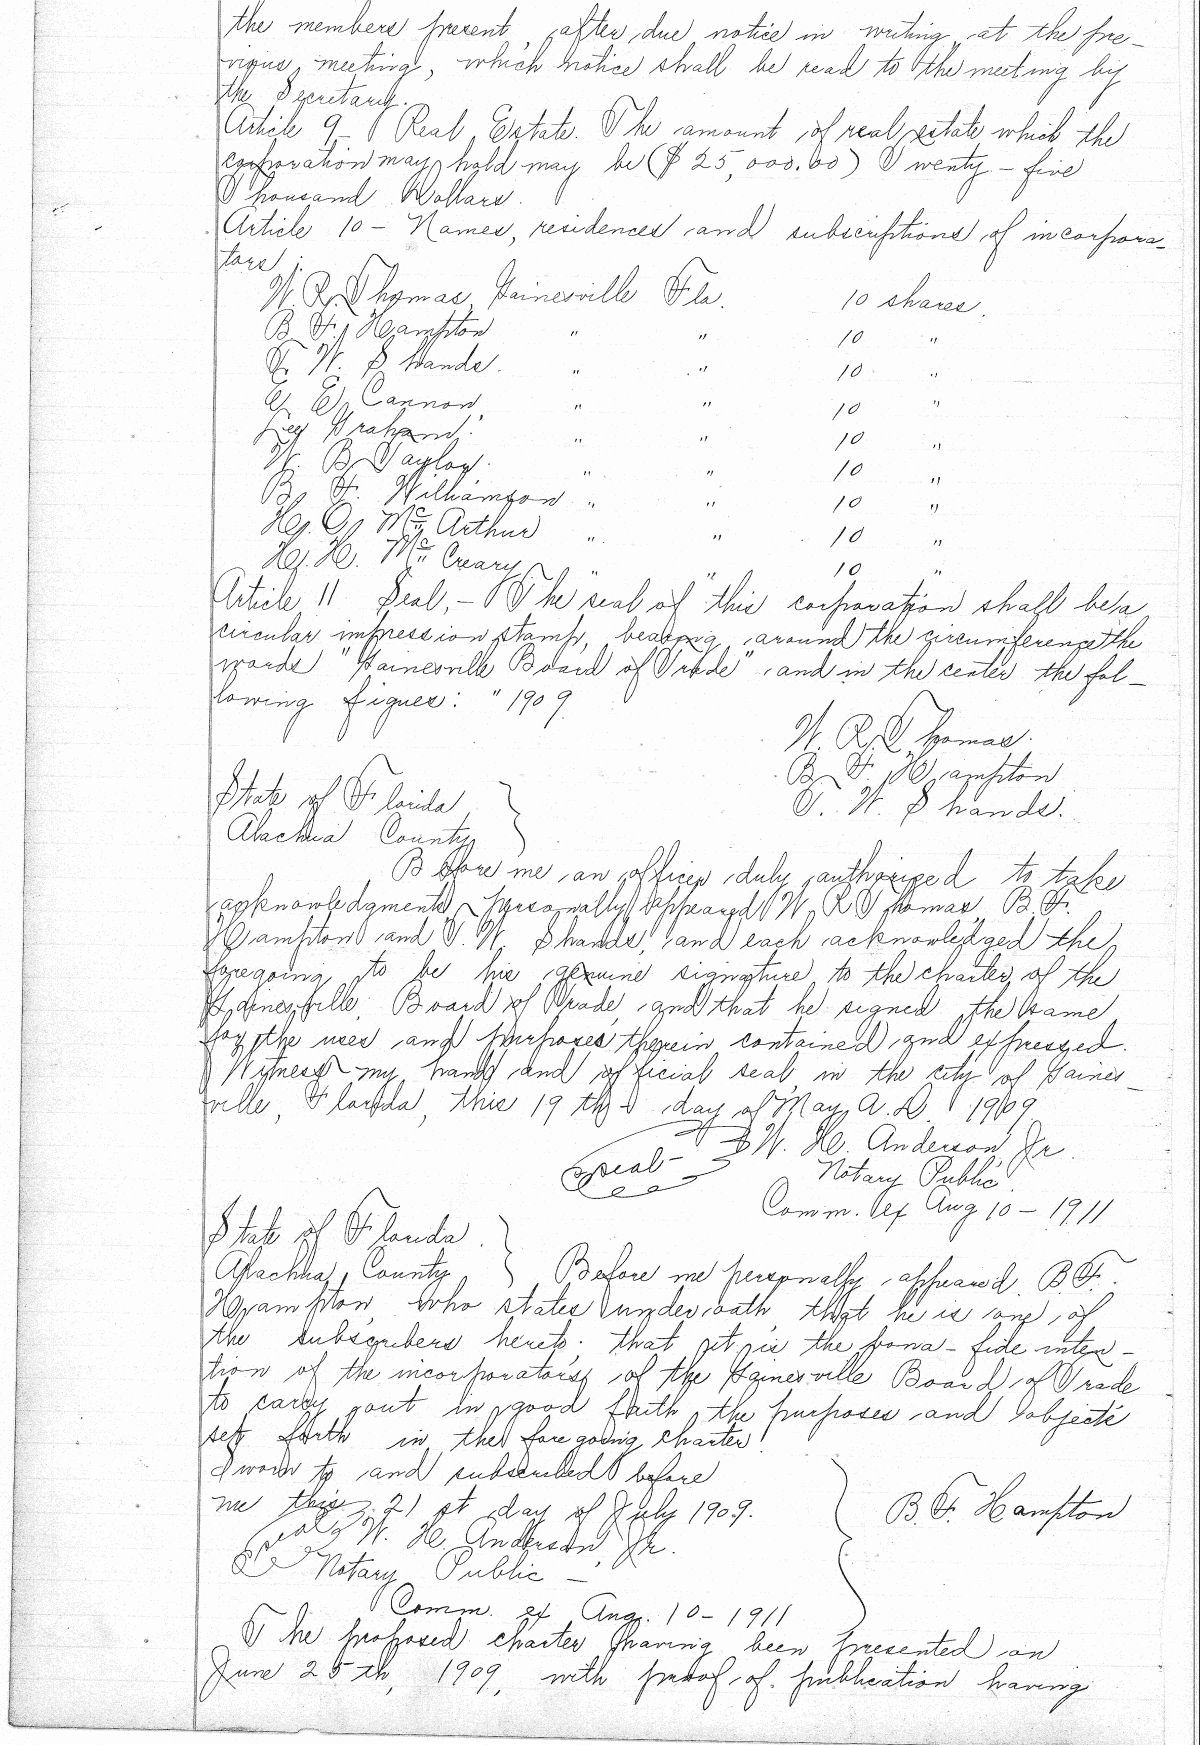 the members present, after due notice in writing at the pre-
vious meeting, which notice shall be read to the meeting by
the Secretary.
Article 9- Real Estate. The amount of real estate which the
corporation may hold may be ($25,000.00) Twenty-five
Thousand Dollars.
Article 10- Names, residences and subscriptions of incorpora-
tors:
W. R. Thomas, Gainesville Fla. 10 shares.
B. F. Hampton " " 10 "
T. W. Shands. " " 10 "
E. E. Cannon, " " 10 "
Lee Graham. " " 10 "
W. B. Taylor. " " 10 "
B. F. Williamson " " 10 "
H. O. McArthur " " 10 "
H. H. McCreary " " 10 "
Article 11 Seal,- The seal of this corporation shall be a
circular impression stamp, bearing around the circumference the
words "Gainesville Board of Trade" and in the center the fol-
lowing figues: "1909
W. R. Thomas.
B. F. Hampton
T. W. Shands.
State of Florida
Alachua County
Before me an officer duly authorized to take
acknowledgments personally appeared W. R Thomas, B. F.
Hampton and T. W. Shands, and each acknowledged the
foregoing to be his genuine signature to the charter of the
Gainesville Board of Trade, and that he signed the same
for the uses and purposes therein contained and expressed.
Witness my hand and official seal in the city of Gaines-
ville, Florida, this 19th day of May A. D. 1909
Seal- W. H. Anderson, Jr.
Notary Public.
Comm. ex Aug 10-1911
State of Florida.
Alachua County Before me personally appeared B. F.
Hampton, who states under oath, that he is one of
the subscribers hereto; that it is the bona-fide inten-
tion of the incorporators of the Gainesville Board of Trade
to carry out in good faith the purposes and objects
set forth in the foregoing charter.
Sworn to and subscribed before
me this 21 st day of July 1909. B. F. Hampton
Seal W. H. Anderson, Jr.
Notary Public-
Comm. ex Aug. 10-1911
The proposed charter having been presented on
June 25th, 1909, with proof of publication having